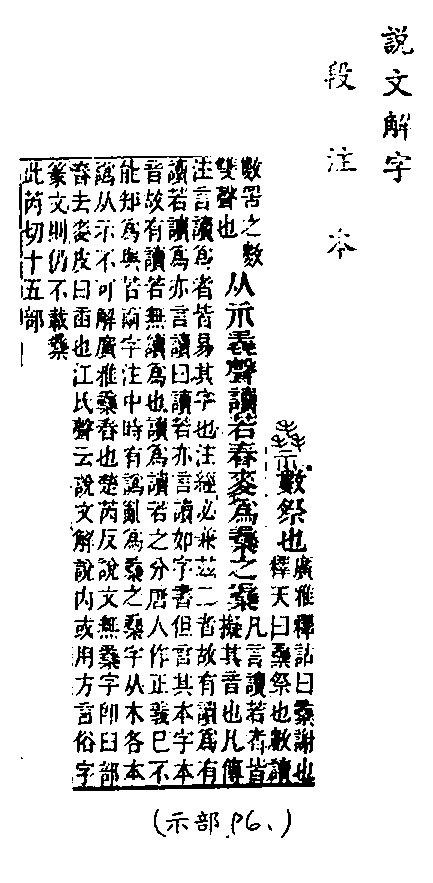 說文解字
段注本
數祭也
廣雅釋詁曰謝也
釋天曰祭也數讀
數罟之數
从示毳聲讀若舂麥爲之
雙聲也
凡言讀若者皆
擬其音也凡傳
注言讀爲者皆易其字也注經必兼茲二者故有讀爲有
讀若讀爲亦言讀曰讀若亦言讀如字書但言其本字本
音故有讀若無讀爲也讀爲讀若之分唐人作正義已不
能知爲與若兩字注中時有譌亂爲之字从木各本
譌从示不可解廣雅舂也楚芮反說文無字卽臼部
舂去麥皮曰臿也江氏聲云說文解說內或用方言俗字
篆文則仍不載
此芮切十五部
(示部 P6.)